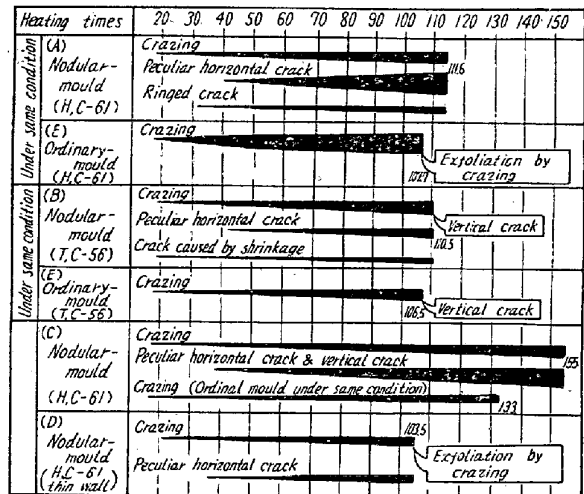 Heating times 20 30 40 50 60 70 80 90 100 110 120 130 140 150
Under same condition
(A)
Nodular-
mould
(H,C-61)
Crazing
Peculiar horizontal crack
111.6
Ringed crack
(E)
Ordinary-
mould
(H,C-61)
Crazing
Exfoliation by
crazing
Under same condition
(B)
Nodular-
mould
(T,C-56)
Crazing
Vertical crack
Peculiar horizontal crack
110.5
Crack caused by shrinkage
(E)
Ordinary-
mould
(T,C-56)
Crazing
106.5
Vertical crack
(C)
Nodular-
mould
(H,C-61)
Crazing
Peculiar horizontal crack & vertical crack
155
Crazing (Ordinal mould under same condition)
133
(D)
Nodular-
mould
(H,C-61
thin wall)
Crazing
103.5
Exfoliation by
crazing
Peculiar horizontal crack